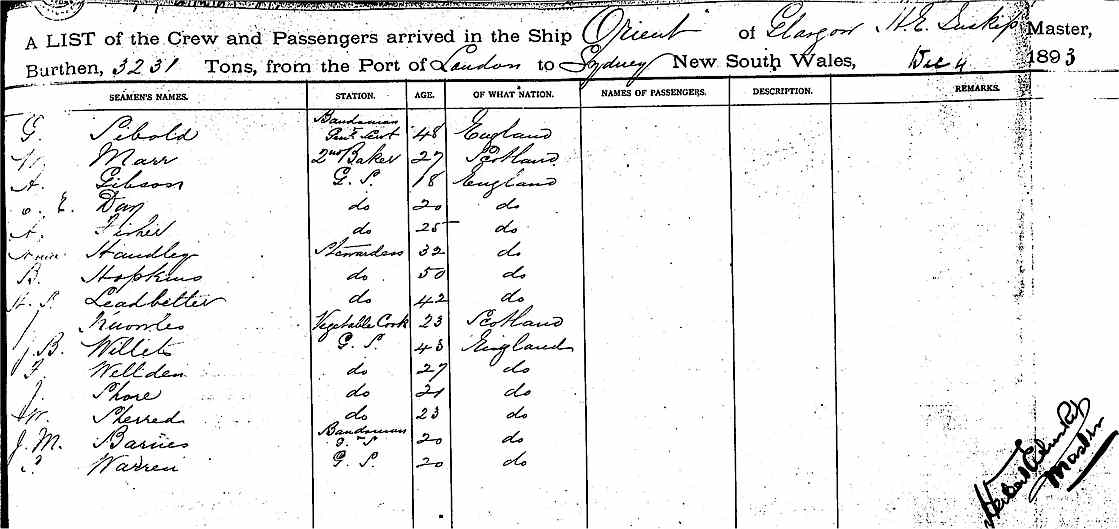 A LIST of the Crew and Passengers arrived in the Ship Orient of Glasgow H. E. Inskip Master,
Burthen, 3231 Tons, from the Port of London to Sydney New South Wales, Dec 4 1893
SEAMEN'S NAMES. STATION. AGE. OF WHAT NATION. NAMES OF PASSENGERS. DESCRIPTION. REMARKS.
G Sebold Bandsman 48 England
Marr 2nd Baker 27 Scotland
A. Gibson G. S. 18 England
E. Day do 20 do
A. Fisher do 25 do
Handley Stewardess 32 do
B. Hopkins do 50 do
Leadbetter do 42 do
J Knowles Vegetable Cook 23 Scotland
J. B. Willets G. S. 43 England
F Wellden do 27 do
J. Shore do 21 do
W. Sherred do 23 do
J. M. Barnes Bandsman G. S. 20 do
Warren G. S. 20 do
Master